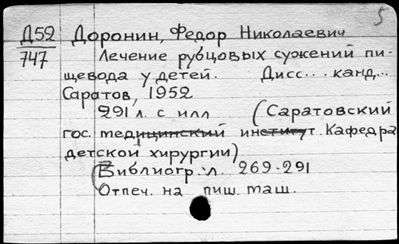 5
Д52 Доронин, Федор Николаевич
747 Лечение рубцовых сужений пи-
щевода у детей. Дисс... канд...
Саратов, 1952
291 л. с илл (Саратовский
гос. медицинский институт. Кафедра
детской хирургии)
(Библиогр: л. 269-291
Отпеч. на пиш. маш.